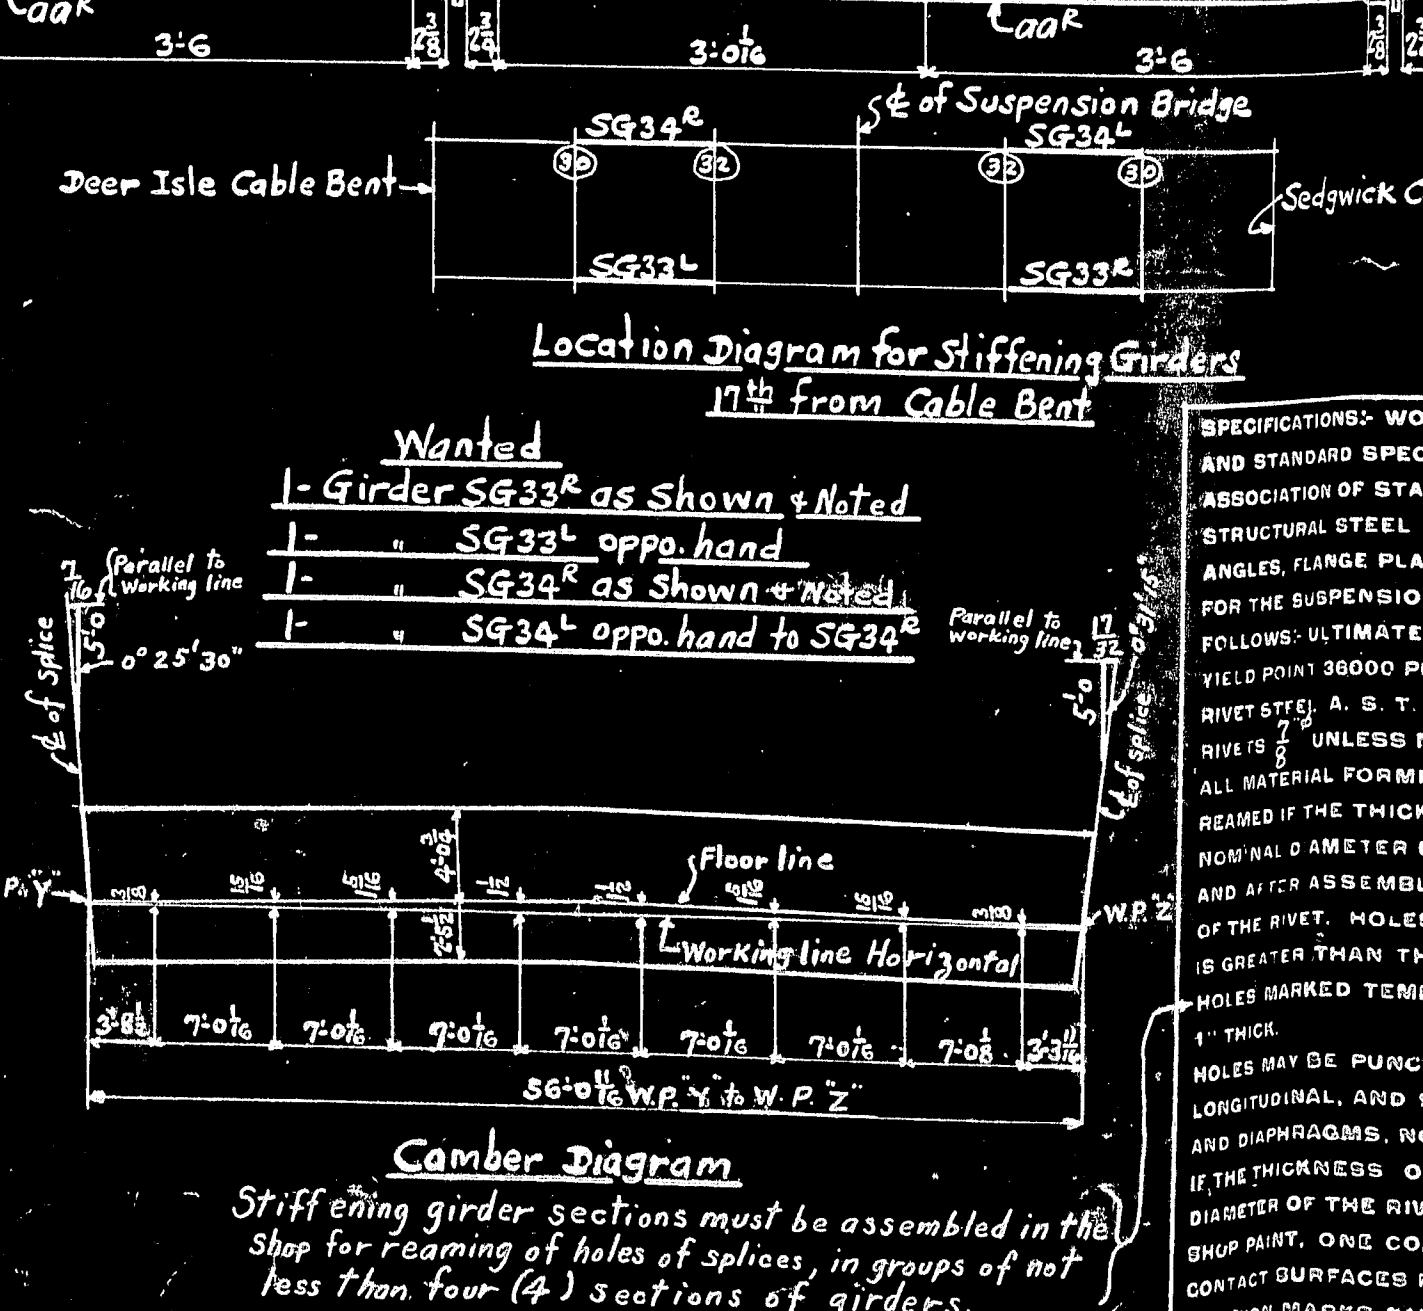 aaR
aaR
3'-6
2 3/8
3'-0 1/16
3'-6
2 3/8
℄ of Suspension Bridge
SG34R
SG34L
30
32
32
30
Deer Isle Cable Bent
Sedgwick C
SG33L
SG33R
Location Diagram for Stiffening Girders
17th from Cable Bent
Wanted
1- Girder SG33R as Shown & Noted
1- " SG33L oppo. hand
1- " SG34R as Shown & Noted
1- " SG34L oppo. hand to SG34R
7/16
Parallel to
Working line
5'-0
0° 25' 30"
℄ of splice
Parallel to
Working line
17/32
5'-0
0° 31' 15"
℄ of splice
4'-0 3/4
Floor line
P. "Y"
3/8
5/16
5/16
1/2
1/2
5/16
5/16
3/8
W.P. "Z"
2'-5 1/2
Working line Horizontal
3'-8 1/2
7'-0 1/16
7'-0 1/16
7'-0 1/16
7'-0 1/16
7'-0 1/16
7'-0 1/16
7'-0 1/8
3'-3 11/16
56'-0 11/16 W.P. "Y" to W.P. "Z"
Camber Diagram
Stiffening girder sections must be assembled in the
shop for reaming of holes of splices, in groups of not
less than four (4) sections of girders.
SPECIFICATIONS:- WO
AND STANDARD SPEC
ASSOCIATION OF STA
STRUCTURAL STEEL
ANGLES, FLANGE PLA
FOR THE SUSPENSIO
FOLLOWS:- ULTIMATE
YIELD POINT 36000 P
RIVET STEEL A. S. T.
RIVETS 7/8"ø UNLESS
ALL MATERIAL FORMI
REAMED IF THE THICK
NOMINAL DIAMETER
AND AFTER ASSEMBL
OF THE RIVET. HOLES
IS GREATER THAN TH
HOLES MARKED TEM
1" THICK.
HOLES MAY BE PUNC
LONGITUDINAL, AND
AND DIAPHRAGMS, NO
IF THE THICKNESS O
DIAMETER OF THE RIV
SHOP PAINT, ONE CO
CONTACT SURFACES